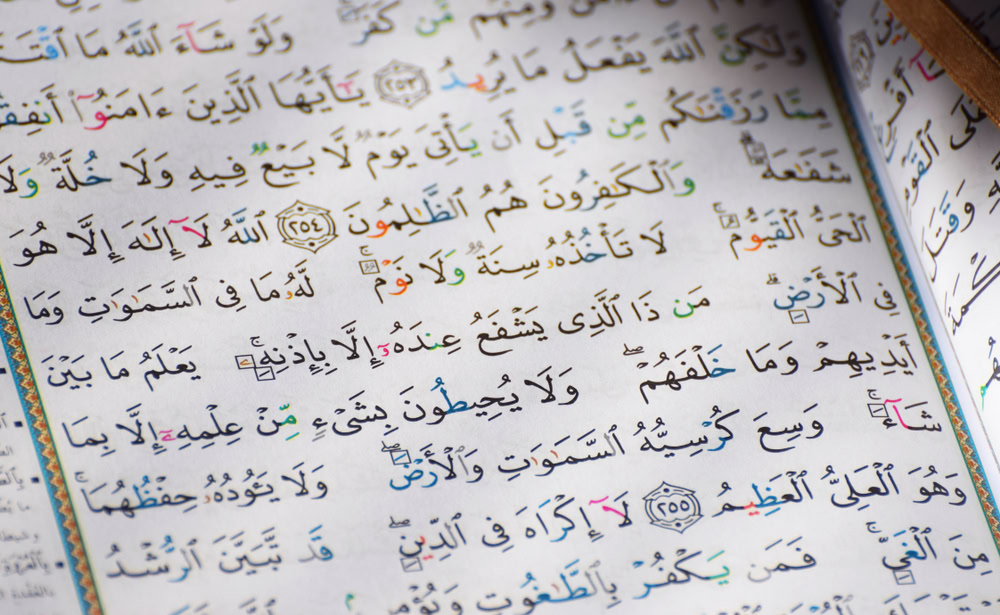 وَمِنْهُم مَّن كَفَرَ ۚ وَلَوْ شَآءَ ٱللَّهُ مَا ٱقْتَتَ
وَلَٰكِنَّ ٱللَّهَ يَفْعَلُ مَا يُرِيدُ ﴿٢٥٣﴾ يَـٰٓأَيُّهَا ٱلَّذِينَ ءَامَنُوٓا۟ أَنفِقُ
مِمَّا رَزَقْنَـٰكُم مِّن قَبْلِ أَن يَأْتِىَ يَوْمٌ لَّا بَيْعٌ فِيهِ وَلَا خُلَّةٌ وَلَا
شَفَـٰعَةٌ ۗ وَٱلْكَـٰفِرُونَ هُمُ ٱلظَّـٰلِمُونَ ﴿٢٥٤﴾ ٱللَّهُ لَآ إِلَـٰهَ إِلَّا هُوَ
ٱلْحَىُّ ٱلْقَيُّومُ ۚ لَا تَأْخُذُهُۥ سِنَةٌ وَلَا نَوْمٌ ۚ لَّهُۥ مَا فِى ٱلسَّمَـٰوَٰتِ وَمَا
فِى ٱلْأَرْضِ ۗ مَن ذَا ٱلَّذِى يَشْفَعُ عِندَهُۥٓ إِلَّا بِإِذْنِهِۦ ۚ يَعْلَمُ مَا بَيْنَ
أَيْدِيهِمْ وَمَا خَلْفَهُمْ ۖ وَلَا يُحِيطُونَ بِشَىْءٍ مِّنْ عِلْمِهِۦٓ إِلَّا بِمَا
شَآءَ ۚ وَسِعَ كُرْسِيُّهُ ٱلسَّمَـٰوَٰتِ وَٱلْأَرْضَ ۖ وَلَا يَـُٔودُهُۥ حِفْظُهُمَا ۚ
وَهُوَ ٱلْعَلِىُّ ٱلْعَظِيمُ ﴿٢٥٥﴾ لَآ إِكْرَاهَ فِى ٱلدِّينِ ۖ قَد تَّبَيَّنَ ٱلرُّشْدُ
مِنَ ٱلْغَىِّ ۚ فَمَن يَكْفُرْ بِٱلطَّـٰغُوتِ وَيُؤْمِن